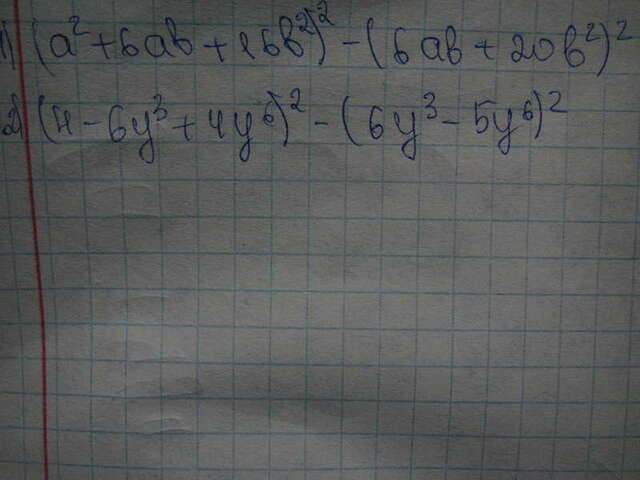 1) (a² + 6ab + 16b²)² - (6ab + 20b²)²
2) (4 - 6y³ + 4y⁶)² - (6y³ - 5y⁶)²